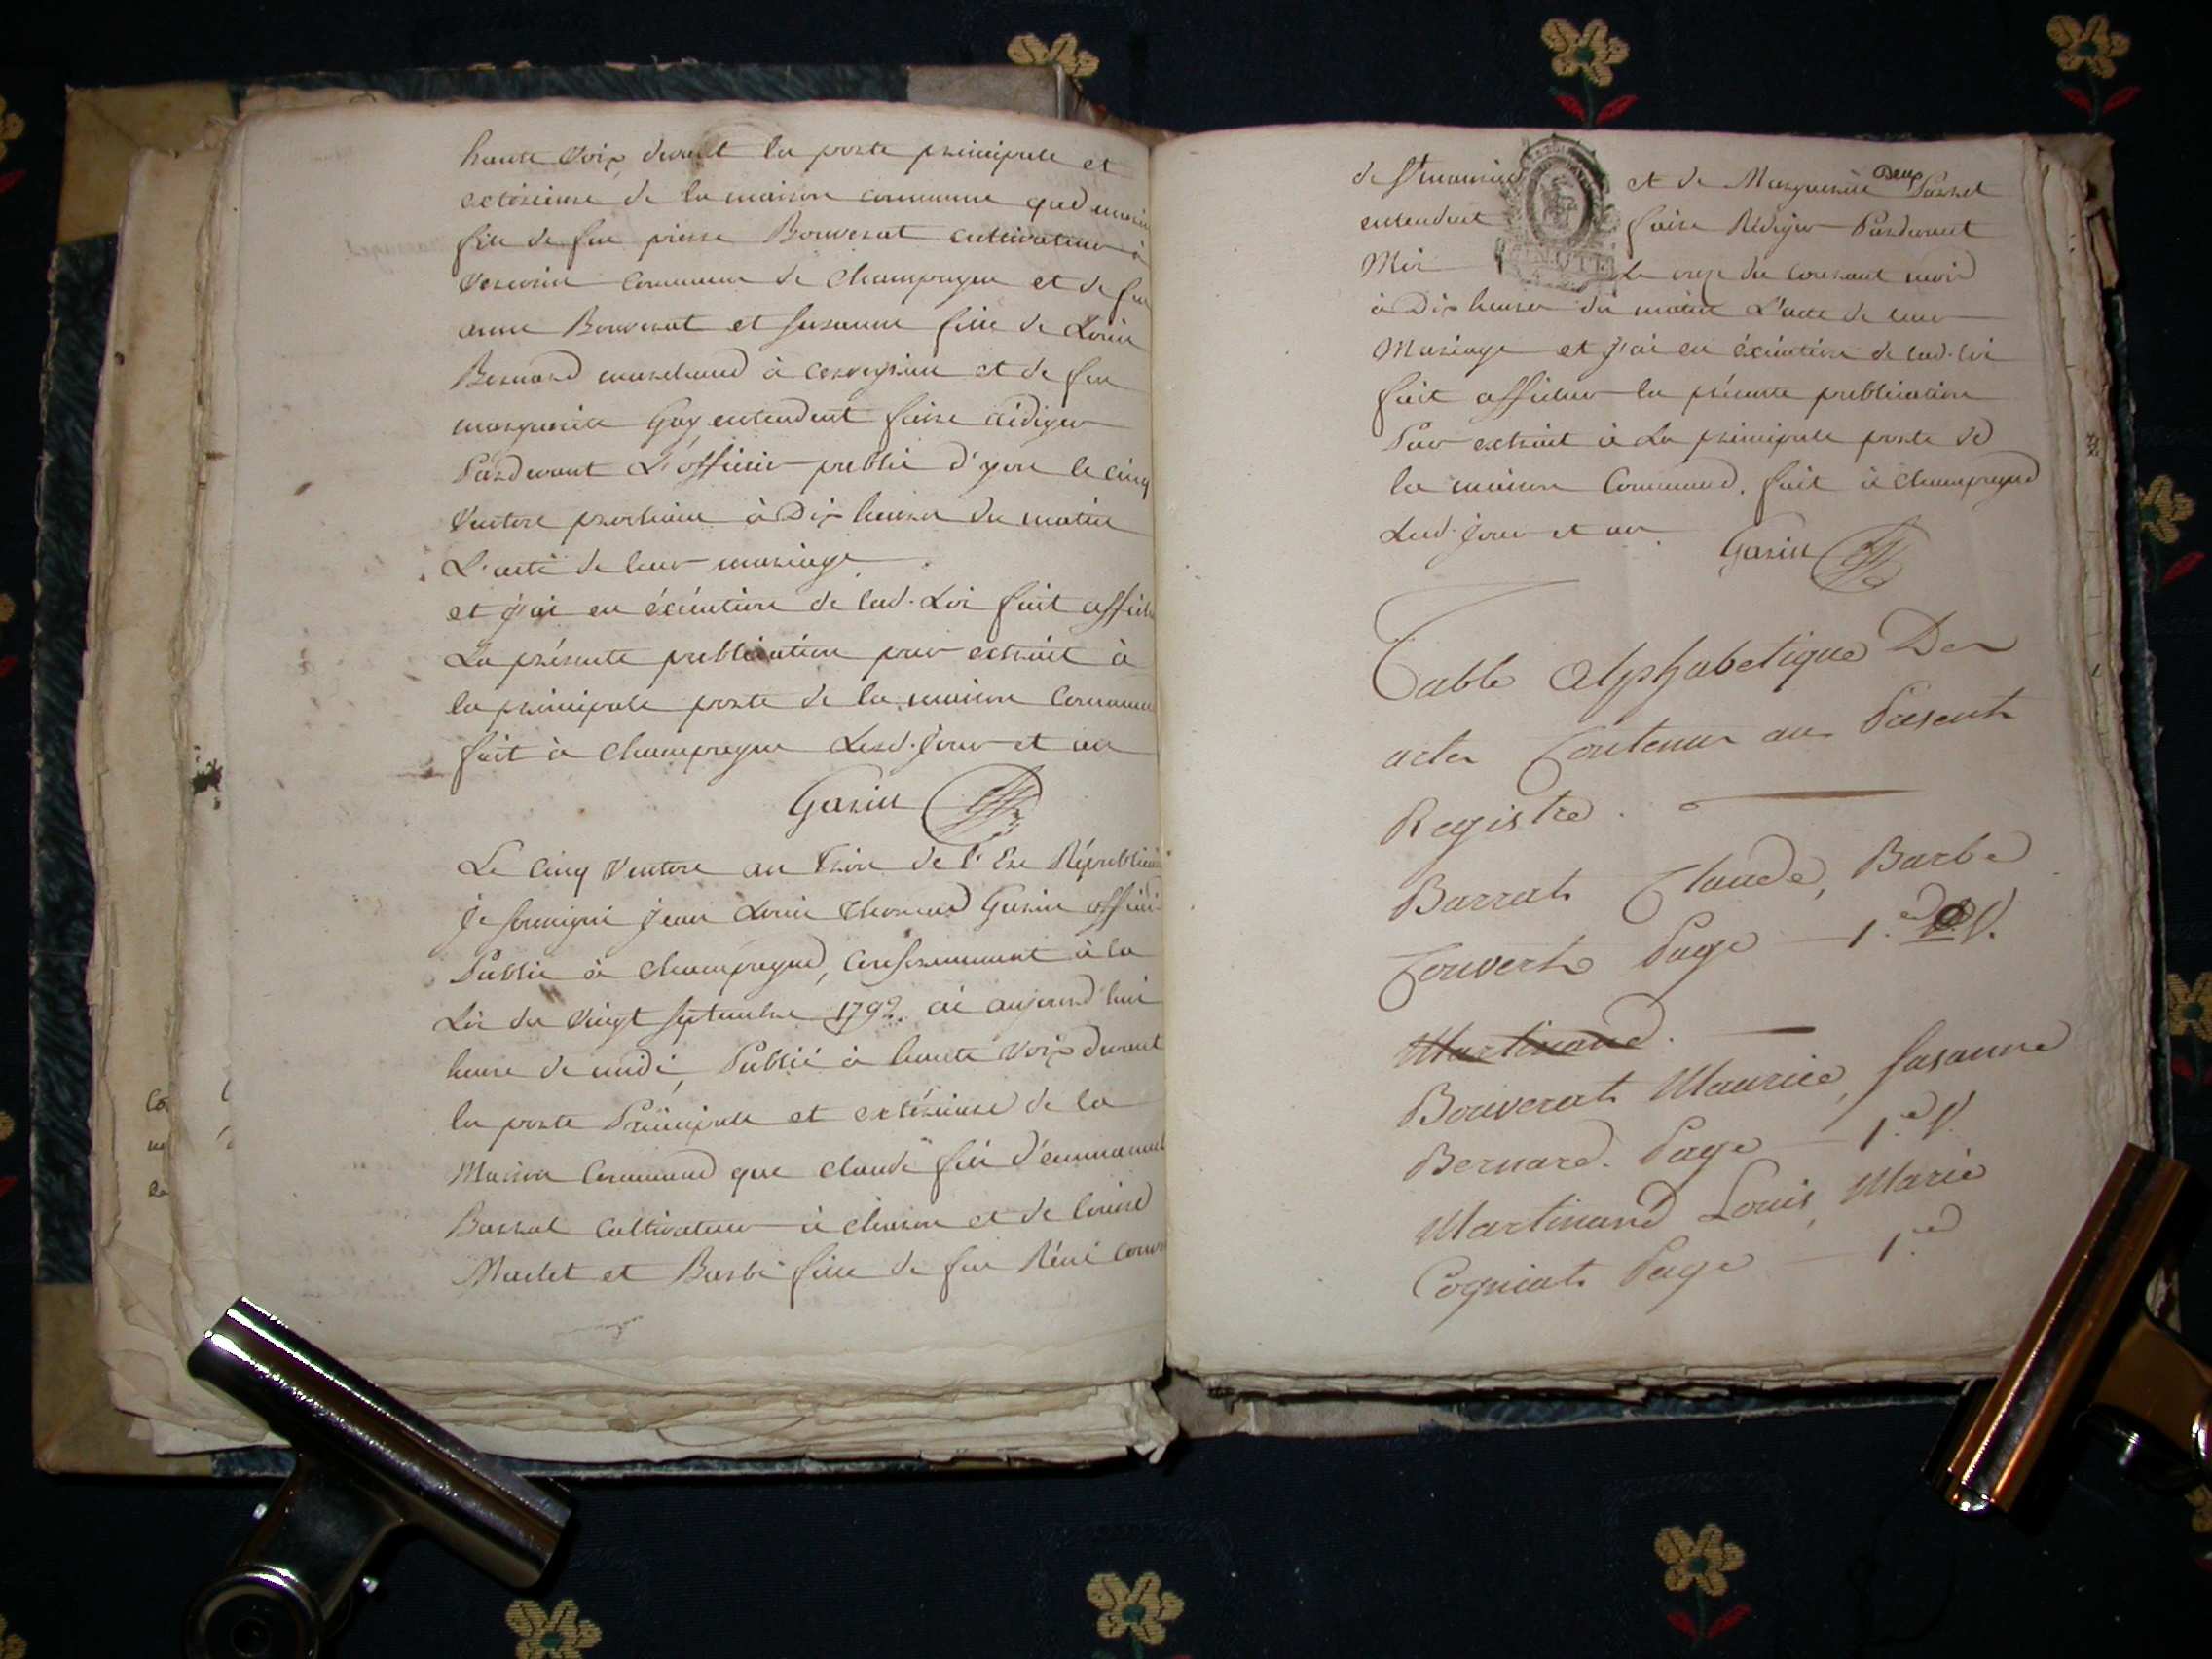 haute voix devant la porte principale et
extérieure de la maison commune que
fils de feu pierre Bouverat cultivateur à
commune de Champagne et de feu
anne Bouverat et susanne fille de Louis
Bernard marchand à et de feu
marguerite Guy entendent faire rédiger
Pardevant L'officier public d'yon le cinq
Ventose prochain à Dix heures du matin
L'acte de leur mariage
et j'ai en éxécution de lad. Loi fait
La présente publication par extrait à
la principale porte de la maison Commune
fait à Champagne Lesd. jour et an
Garin
Le Cinq Ventose an Trois de l'Ere
je soussigné jean Louis Garin
Public à Champagne, Conformement à la
Loi du Vingt septembre 1792. ai aujourd'hui
heure de midi, Publié à haute Voix devant
la porte Principale et extérieure de la
Maison Commune que Claude fils d'emmanuel
Barrat Cultivateur à et de Louise
Martet et Barbe fille de feu Réné
de St maurice et de Marguerite
entendent faire Rédiger Pardevant
Moi le onze du Courant mois
à Dix heures du matin L'acte de leur
Mariage et j'ai en éxécution de lad. loi
fait afficher la présente publication
Par extrait à La principale porte de
la maison Commune. fait à Champagne
Lesd. jour et an Garin
Table Alphabetique Des
actes Contenus au Present
Registre.
Barrat Claude, Barbe
Convert Page 1.e V.
Martinand.
Bouverat Maurice, Susanne
Bernard. Page 1.e V.
Martinand Louis, Marie
Cogniat Page 1.e